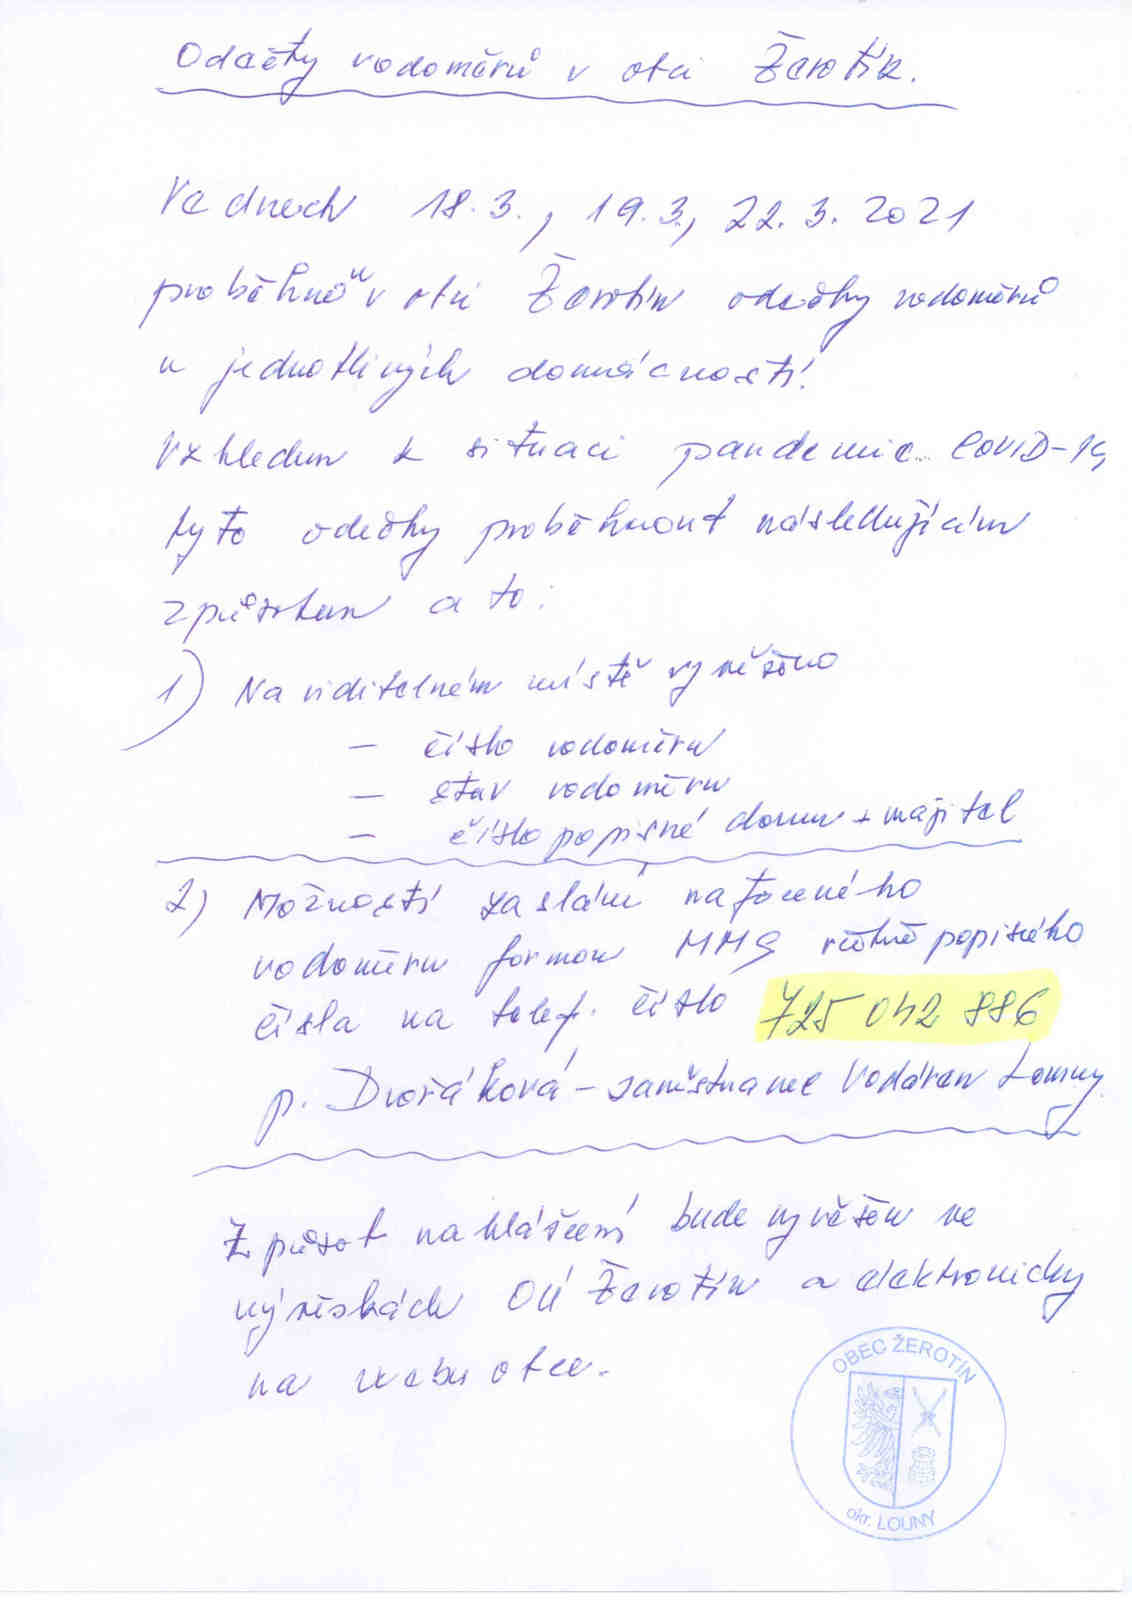 Odečty vodoměrů v obci Žerotín.
Ve dnech 18.3., 19.3., 22.3. 2021
proběhnou v obci Žerotín odečty vodoměrů
u jednotlivých domácností.
Vzhledem k situaci pandemie COVID-19
tyto odečty proběhnout následujícím
způsobem a to:
1) Na viditelném místě vyvěšeno
- číslo vodoměru
- stav vodoměru
- číslo popisné domu + majitel
2) Možností zaslání nafoceného
vodoměru formou MMS včetně popisného
čísla na telef. číslo 725 042 886
p. Dvořáková - zaměstnanec Vodáren Louny.
Způsob nahlášení bude vyvěšen ve
vývěskách OÚ Žerotín a elektronicky
na webu obce.
OBEC ŽEROTÍN
okr. LOUNY